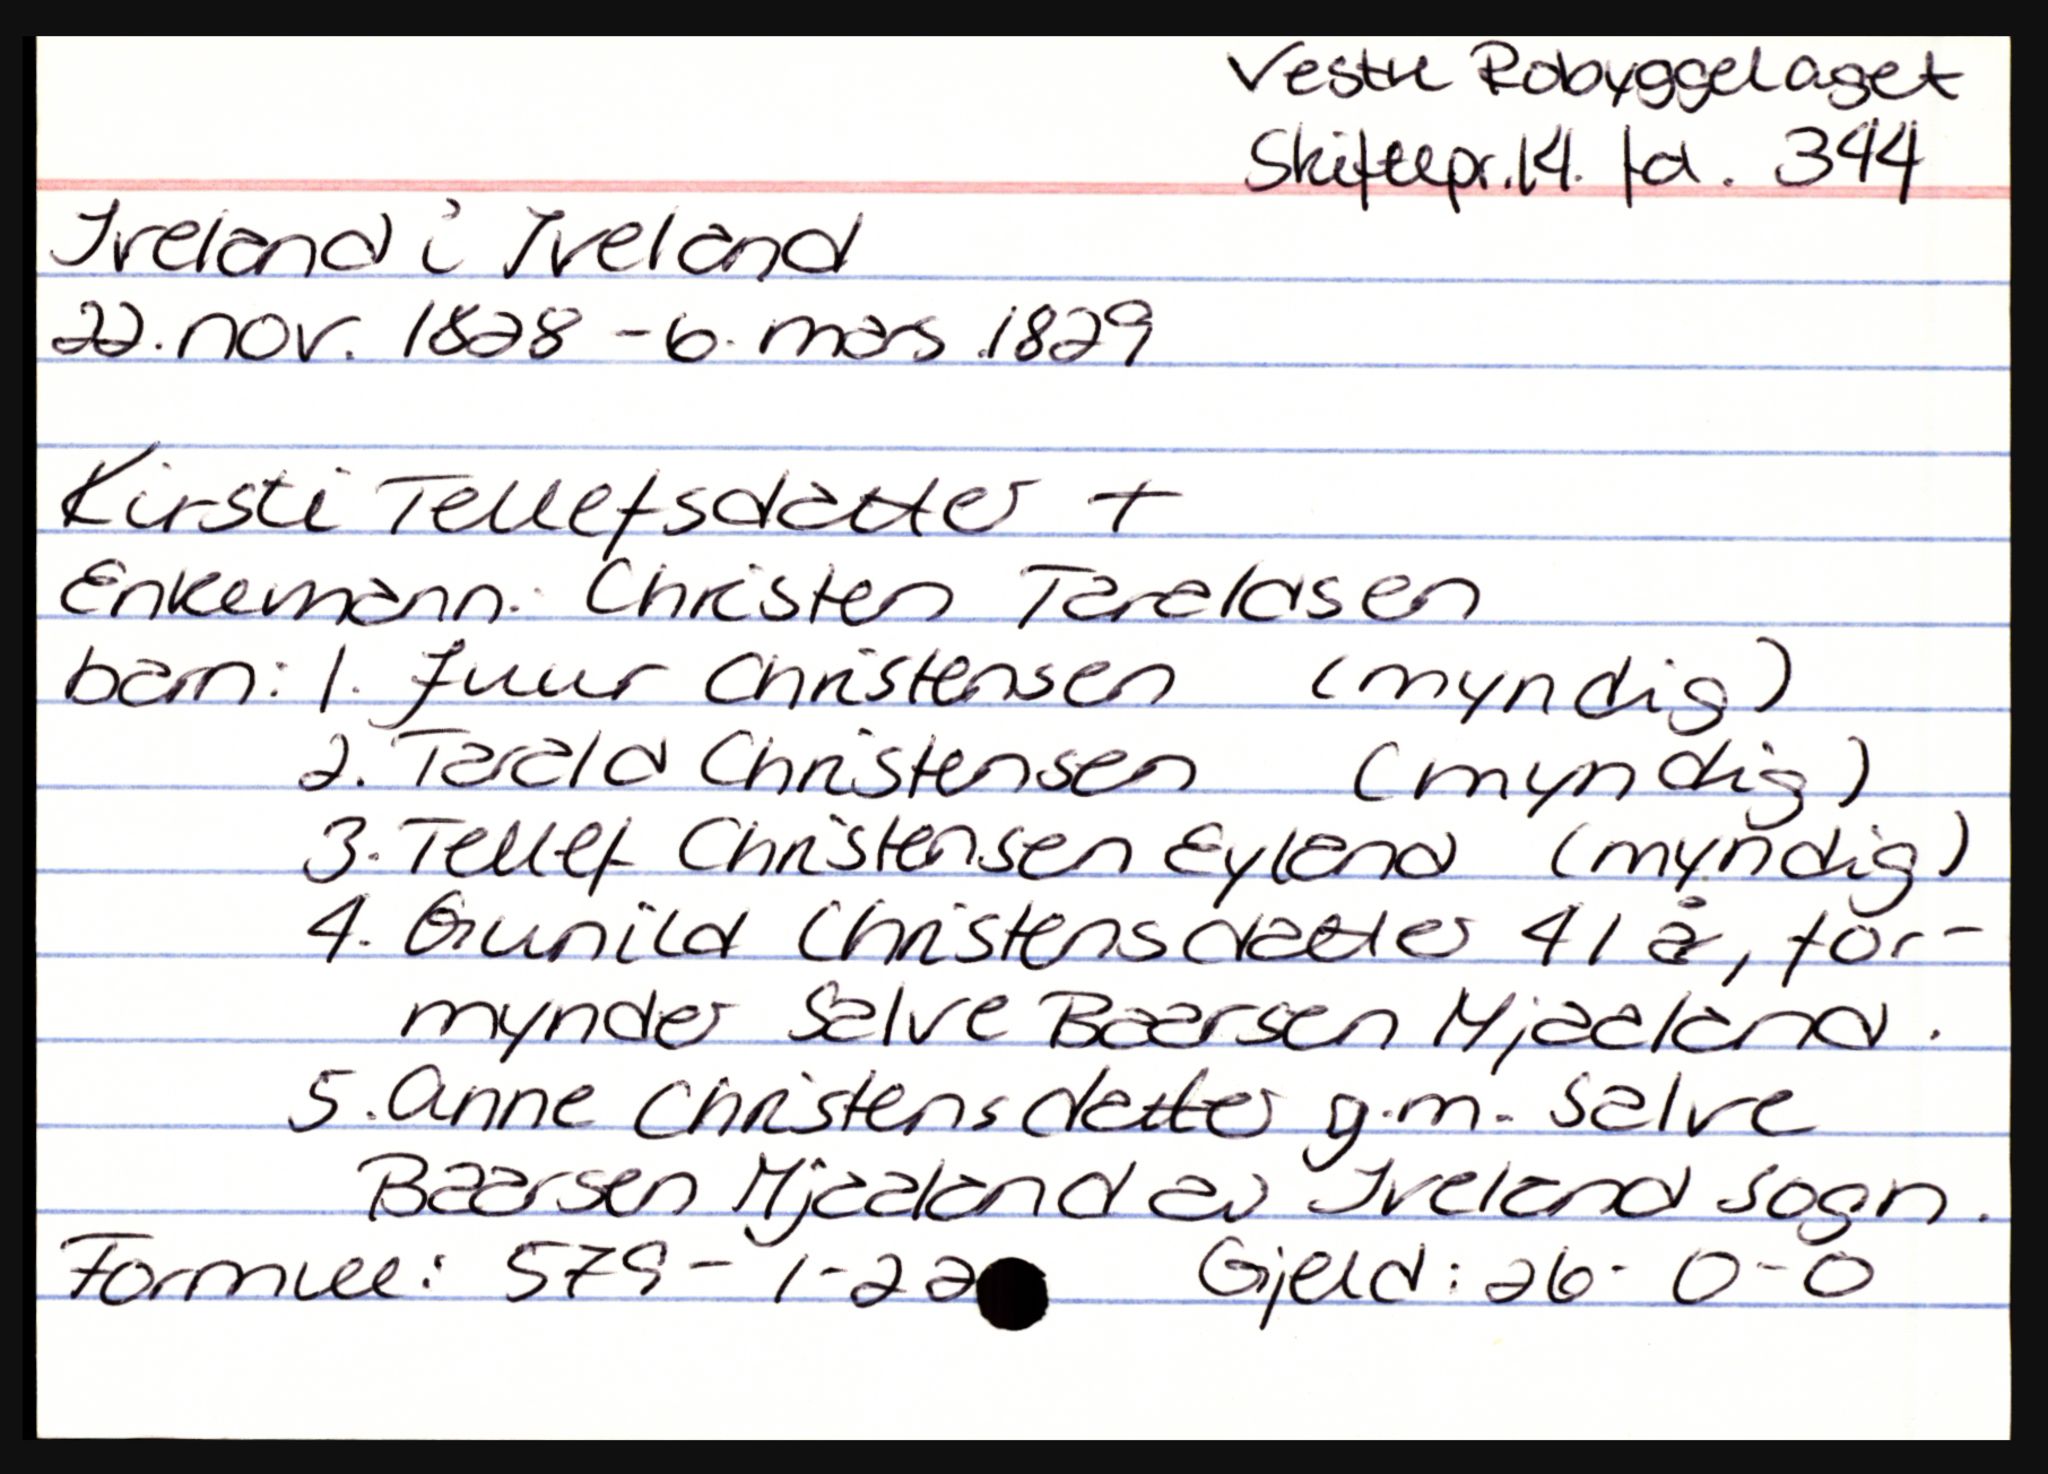 Vestre Robyggelaget
Skiftepr. 14. fol. 344
Iveland i Iveland
22. nov. 1828 - 6. mars 1829
Kirsti Tellefsdatter +
Enkemann: Christen Taraldsen
barn: 1. Juur Christensen (myndig)
2. Tarald Christensen (myndig)
3. Tellef Christensen Eyland (myndig)
4. Gunild Christensdatter 41 år, for-
mynder Salve Baarsen Mjaaland.
5. Anne Christensdatter g.m. Salve
Baarsen Mjaaland av Iveland sogn.
Formue: 579-1-22 Gjeld: 26-0-0